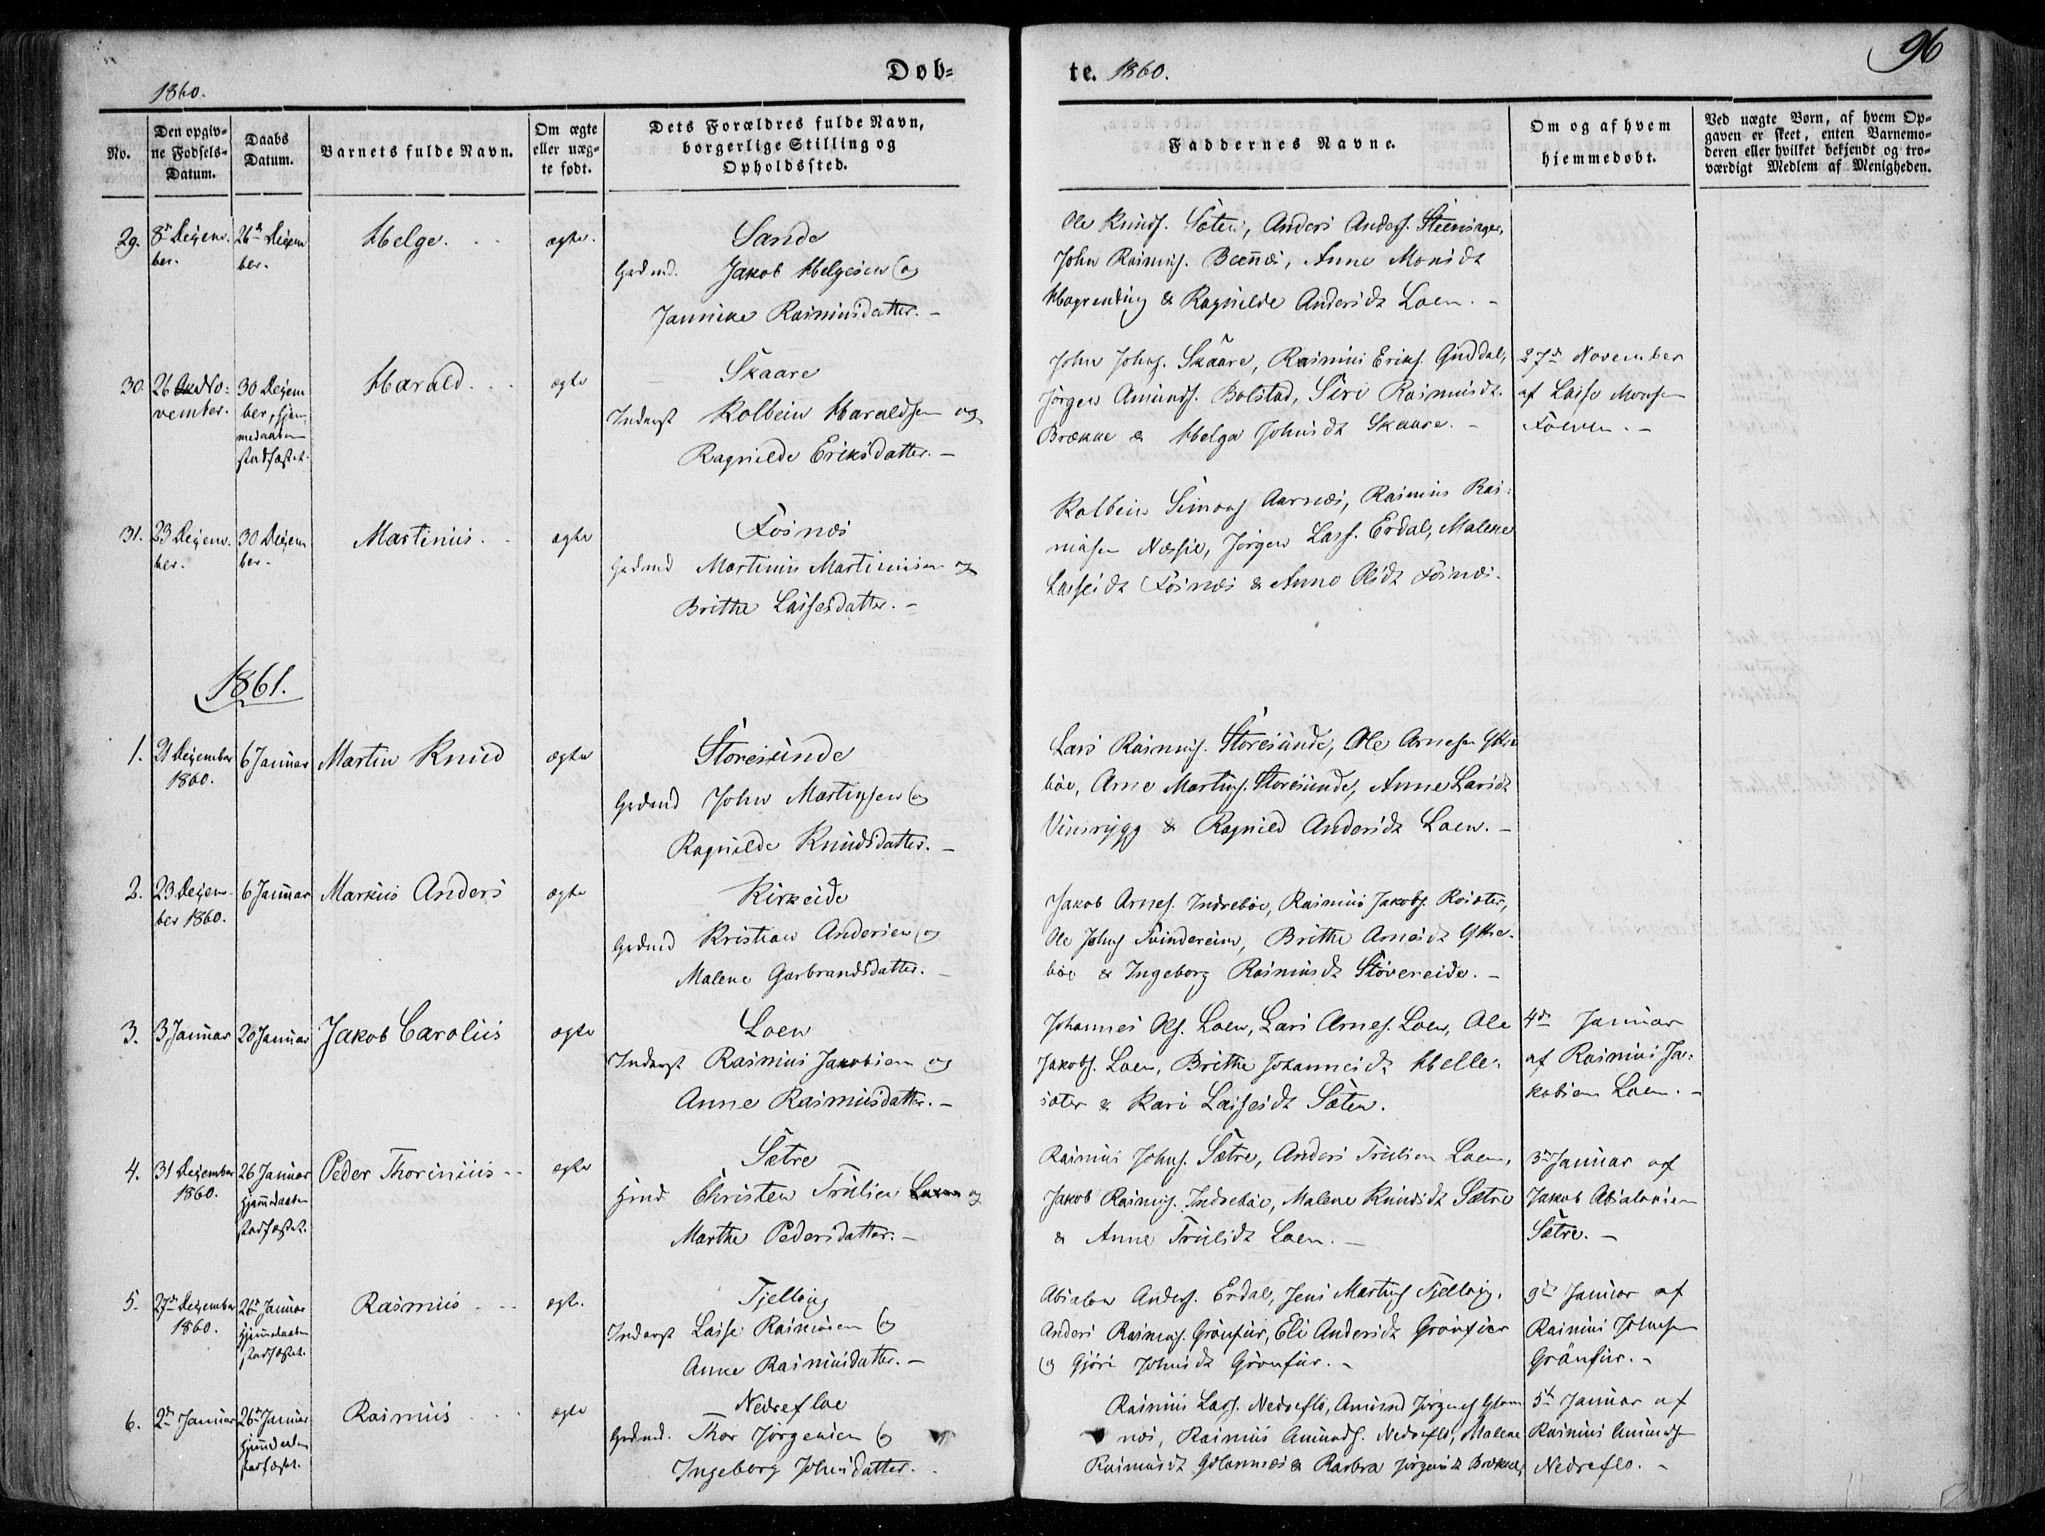 96
Døb-
te. 1860.
1860.
No.
Den opgiv-
ne Fødsels-
Datum.
Daabs
Datum.
Barnets fulde Navn.
Om ægte
eller uæg-
te født.
Dets Forældres fulde Navn,
borgerlige Stilling og
Opholdssted.
Faddernes Navne.
Om og af hvem
hjemmedøbt.
Ved uægte Børn, af hvem Op-
gaven er skeet, enten Barnemo-
deren eller hvilket bekjendt og tro-
værdigt Medlem af Menigheden.
29.
8de Dezem-
ber.
26de Dezem
ber.
Helge.
ægte.
Sande
Grdmd. Jakob Helgesen og
Jannike Rasmusdatter.
Ole Knuds. Sæten, Anders Anders.
John Rasmus. Bennæs, Anne Monsdt
& Ragnilde Andersdt Loen.
30
26 No-
vember.
30 Dezem
ber, hjem-
medaaben
stadfæstet.
Harald.
ægte
Skaare
Inderst Kolbein Haraldsen og
Ragnilde Eriksdatter.
John Johns. Skaare, Rasmus Eriks. Guddal,
Jørgen Amunds. Bolstad, Siri Rasmusdt.
Brække & Helga Johnsdt Skaare.
27de November
af Lasse Monsen
31.
23 Dezem-
ber.
30 Dezem
ber.
Martinus.
ægte
Fosnæs
Grdmd Martinus Martinusen og
Brithe Lassesdatter.
Kolbein Simons Aarnæs, Rasmus Ras-
musen Næssie, Jørgen Lass. Erdal, Malene
Lassesdt Fosnæs & Anne Olsdt Fosnæs.
1861.
1.
21 Dezember
1860.
6 Januar
Martin Knud
ægte
Storesunde
Grdmd John Martinsen og
Ragnilde Knudsdatter.
Lars Rasmus. Storesunde, Ole Arnesen Ytre
böe, Arne Martins. Storesunde, Anne Larsdt
Vinsrygg & Ragnild Andersdt Loen.
2.
23 Dezem-
ber 1860.
6 Januar
Markus Anders
ægte
Kirkeide
Grdmd Kristian Andersen og
Malene Garbrandsdatter.
Jakob Arnes. Indreböe, Rasmus Jakobs. Rosæter,
Ole Johns Tvindereim, Brithe Arnesdt Ytre-
böe & Ingeborg Rasmusdt Støvereide.
3.
3 Januar
20 Januar
Jakob Carolus
ægte
Loen
Inderst Rasmus Jakobsen og
Anne Rasmusdatter.
Johannes Ols. Loen, Lars Arnes. Loen, Ole
Jakobs. Loen, Brithe Johannesdt Helle-
sæter & Kari Lassesdt Sæten.
4de Januar
af Rasmus Ja-
kobsen Loen.
4.
31 Dezember
1860.
26 Januar
Hjemmedaaben
stadfæstet.
Peder Thorinius
ægte
Sætre
Christen Trulsen og
Marthe Pedersdatter.
Rasmus Johns. Sætre, Anders Trulsen Loen,
Jakob Rasmus. Indreböe, Malene Knudsdt Sætre
& Anne Trulsdt Loen.
3de Januar af
Jakob Absalonsen
Sætre.
5.
27de Dezember
1860.
26de Januar
Hjemmedaaben
stadfæstet.
Rasmus
ægte.
Tjellaug
Inderst Lasse Rasmusen og
Anne Rasmusdatter.
Absalon Anders. Erdal, Jens Martins Tjellaug,
Anders Rasmus. Grönfur, Eli Andersdt Grönfur
og Gjöri Johnsdt Grönfur.
9de Januar af
Rasmus Johnsen
Grönfur.
6.
2de Januar
26de Januar
Hjemmedaaben
stadfæstet.
Rasmus
ægte
Nedrefloe
Grdmd. Thor Jørgensen og
Ingeborg Johnsdatter.
Rasmus Lass. Nedreflo, Amund Jørgens
næs, Rasmus Amunds. Nedreflo, Malene
Rasmusdt & Barbra Jørgensdt Brække,
5te Januar af
Rasmus Amundsen
Nedreflo.